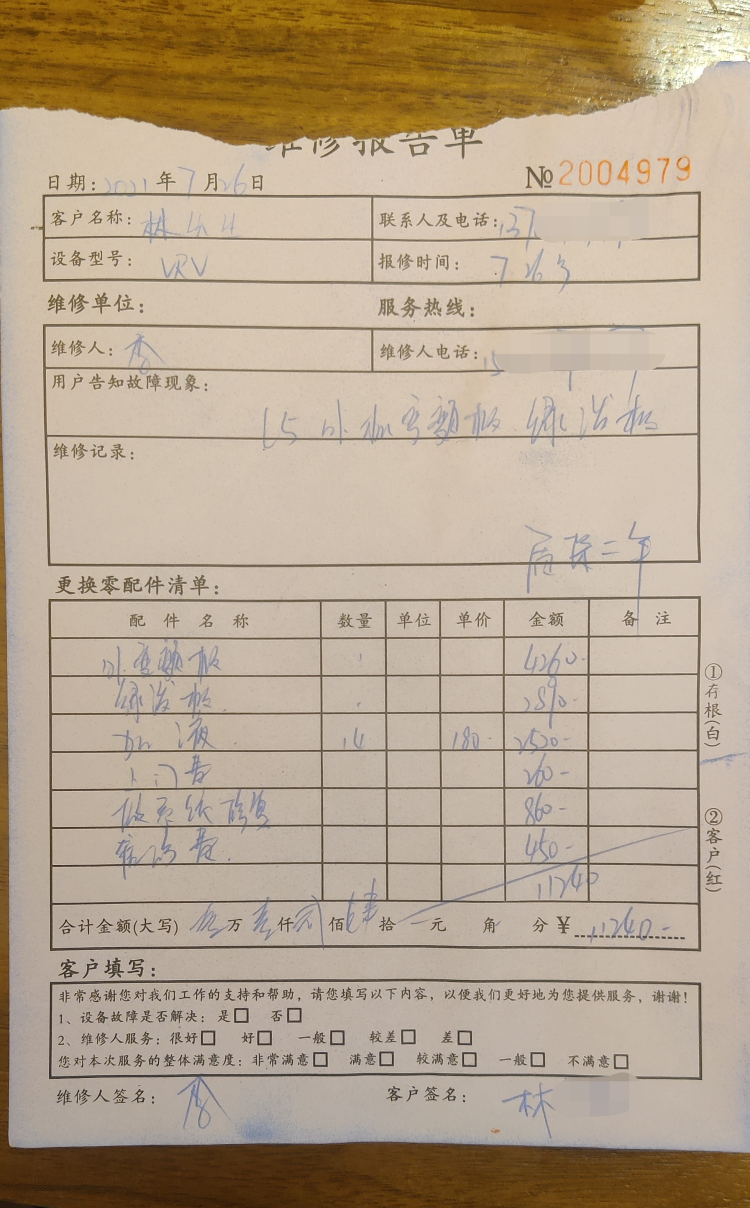 维修报告单
日期：2021年7月26日 № 2004979
客户名称：林女士 联系人及电话：137
设备型号：VRV 报修时间：7.26号
维修单位： 服务热线：
维修人：李 维修人电话：15
用户告知故障现象：
L5 外机变频板 滤波板
维修记录：
质保二年
更换零配件清单：
配件名称 数量 单位 单价 金额 备注
外变频板 1 4260-
滤波板 2890-
加液 14 180- 2520-
上门费 260-
860-
450-
11240
合计金额(大写) 万壹仟贰佰肆拾 元 角 分 ¥ 11240-
①存根(白)
②客户(红)
客户填写：
非常感谢您对我们工作的支持和帮助，请您填写以下内容，以便我们更好地为您提供服务，谢谢！
1、设备故障是否解决：是□ 否□
2、维修人服务：很好□ 好□ 一般□ 较差□ 差□
您对本次服务的整体满意度：非常满意□ 满意□ 较满意□ 一般□ 不满意□
维修人签名：李 客户签名：林